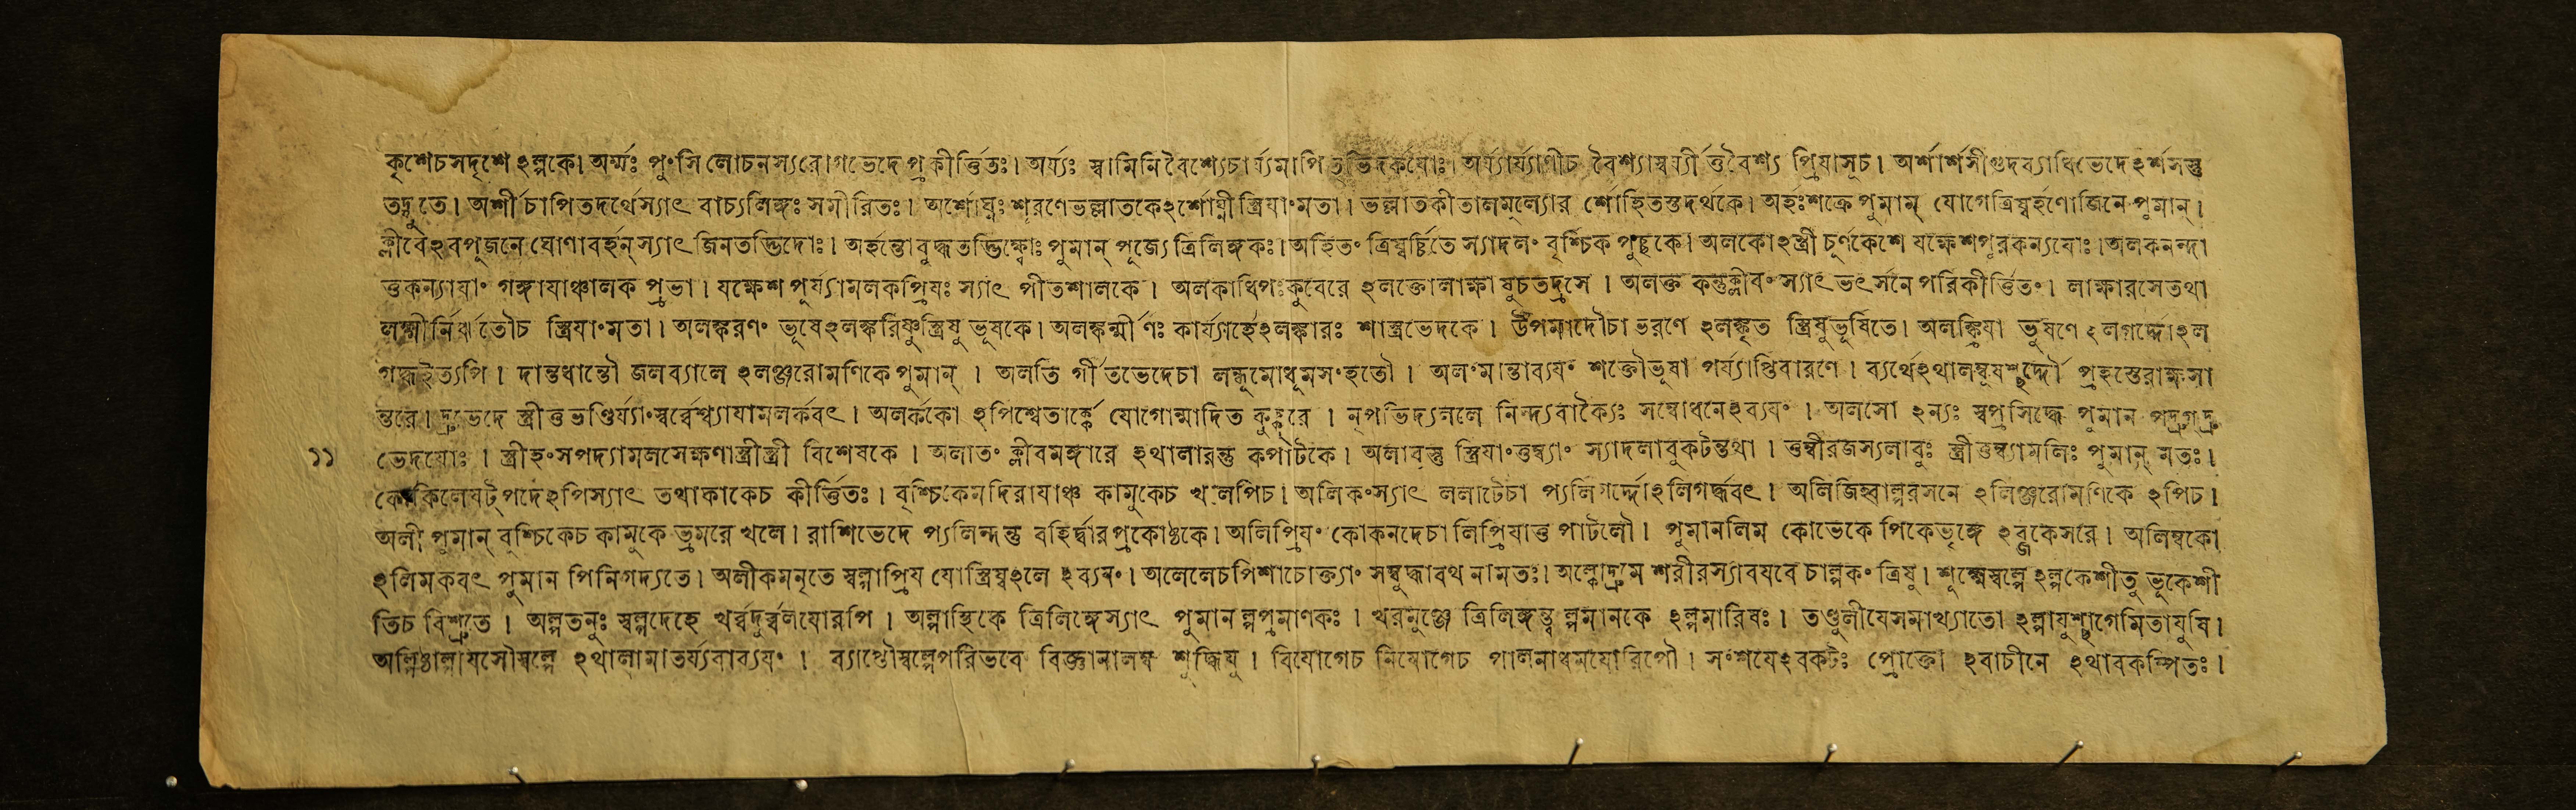 কৃশেচসদৃশে ঽল্পকে। অর্ম্মঃ পুংসি লোচনস্যরোগভেদে প্রকীর্ত্তিতঃ। অর্য্যঃ স্বামিনি বৈশ্যেচার্য্যমাপিতৃভিদর্কযোঃ। অর্য্যার্য্যাণীচ বৈশ্যাস্বর্য্যীর্ত্তবৈশ্য প্রিযাসূচ। অর্শার্শসীগুদব্যাধিভেদেঽর্শসস্তু
তদ্যুতে। অর্শী চাপিতদর্থেস্যাৎ বাচ্যলিঙ্গঃ সমীরিতঃ। অর্শোঘ্নঃ শূরণেভল্লাতকেঽর্শোঘ্নীস্ত্রিযাংমতা। ভল্লাতকীতালমূল্যোর র্শোহিতস্তদর্থকে। অর্হঃশক্রে পুমান্ যোগেত্রিষ্বর্হণোজিনে পুমান্।
ক্লীবেঽবপূজনে ঘোণাবর্হন্ স্যাৎ জিনতদ্ভিদোঃ। অর্হন্তোবুদ্ধতদ্ভিক্ষ্বোঃ পুমান্ পূজ্যে ত্রিলিঙ্গকঃ। অর্হিতং ত্রিষ্বর্চ্চিতে স্যাদলং বৃশ্চিক পুচ্ছকে। অলকোঽস্ত্রী চুর্ণকেশে যক্ষেশপূরকন্যযোঃ। অলকনন্দা
ত্তকন্যাযাং গঙ্গাযাঞ্চালক প্রভা। যক্ষেশ পুর্য্যামলকপ্রিযঃ স্যাৎ পীতশালকে। অলকাধিপঃকুবেরে ঽলক্তোলাক্ষা ষুচতদ্রসে। অলক্ত কন্তুক্লীবং স্যাৎ ভৎর্সনে পরিকীর্ত্তিতং। লাক্ষারসেতথা
লক্ষ্মীর্নির্ঋতৌচ স্ত্রিযাংমতা। অলঙ্করণং ভূষেঽলঙ্করিষ্ণুস্ত্রিষু ভূষকে। অলঙ্কর্ম্মীণঃ কার্য্যার্হেঽলঙ্কারঃ শাস্ত্রভেদকে। উপমাদৌচাভরণে ঽলঙ্কৃত স্ত্রিষুভূষিতে। অলঙ্ক্রিযা ভুষণে ঽলগর্দ্দোঽল
গর্দ্ধইত্যপি। দান্তধান্তৌ জলব্যালে ঽলঞ্জরোমণিকে পুমান্। অলতি র্গীতভেদেচা লন্ধূমোধূমসংহতৌ। অলংমান্তাব্যযং শক্তৌভূষা পর্য্যাপ্তিবারণে। ব্যর্থেঽথালম্বুষশ্ছর্দ্দৌ প্রহস্তেরাক্ষসা
ন্তরে। দ্রুভেদে স্ত্রীত্ত ভণ্ডির্য্যাংস্বর্ব্বেশ্ব্যাযামলর্কবৎ। অলর্ককো ঽপিশ্বেতার্ক্কে যোগোন্মাদিত কুক্কুরে। নৃপভিদ্যললে নিন্দ্যবাক্যৈঃ সম্বোধনেঽব্যযং। অলসো ঽন্যঃ স্বপ্রসিদ্ধে পুমান পদ্রুগদ্রু
ভেদযোঃ। স্ত্রীহংসপদ্যামলসেক্ষণাস্ত্রীস্ত্রী বিশেষকে। অলাতং ক্লীবমঙ্গারে ঽথালারন্তু কপাটকে। অলাবূস্তু স্ত্রিযাংত্তুম্ব্যাং স্যাদলাবুকটন্তথা। ত্তুম্বীরজস্যলাবুঃ স্ত্রীত্তুম্ব্যামলিঃ পুমান্ মতঃ।
১১
কোকিলেষট্পদেঽপিস্যাৎ তথাকাকেচ কীর্ত্তিতঃ। বৃশ্চিকেমদিরাযাঞ্চ কামুকেচ খলেপিচ। অলিকংস্যাৎ ললাটেচা প্যলিগর্দ্দোঽলিগর্দ্ধবৎ। অলিজিহ্বাল্পরসনে ঽলিঞ্জরোমণিকে ঽপিচ।
অলী পুমান্ বৃশ্চিকেচ কামুকে ভ্রমরে খলে। রাশিভেদে প্যলিন্দস্তু বহির্দ্বারপ্রকোষ্ঠকে। অলিপ্রিযং কোকনদেচালিপ্রিযাত্ত পাটলৌ। পুমানলিম কোভেকে পিকেভৃঙ্গে ঽব্জকেসরে। অলিম্বকো
ঽলিমকবৎ পুমান পিনিগদ্যতে। অলীকমনৃতে স্বল্পাপ্রিয যোস্ত্রিষ্বঽলে ঽব্যযং। অলেলেচপিশাচোক্ত্যাং সম্বুদ্ধাবথ নামতঃ। অল্কোদ্রুমে শরীরস্যাবযবে চাল্পকং ত্রিষু। শূক্ষ্মেস্বল্পে ঽল্পকেশীতু ভূকেশী
তিচ বিশ্রুতে। অল্পতনুঃ স্বল্পদেহে খর্ব্বদুর্ব্বলযোরপি। অল্পাস্থিকে ত্রিলিঙ্গেস্যাৎ পুমানল্পপ্রমাণকঃ। খরমুঞ্জে ত্রিলিঙ্গন্তু ল্পমানকে ঽল্পমারিষঃ। তণ্ডুলীযেসমাখ্যাতো ঽল্পাযুশ্ছাগেমিতাযুষি।
অল্পিষ্ঠাল্পীযসৌস্বল্পে ঽথালামাতর্য্যবাব্যযং। ব্যাপ্তৌস্বল্পেপরিভবে বিজ্ঞানালম্ব শুদ্ধিষু। বিযোগেচ নিযোগেচ পালনাধমযোরিপৌ। সংশযেঽবকটঃ প্রোক্তো ঽবাচীনে ঽথাবকম্পিতঃ।